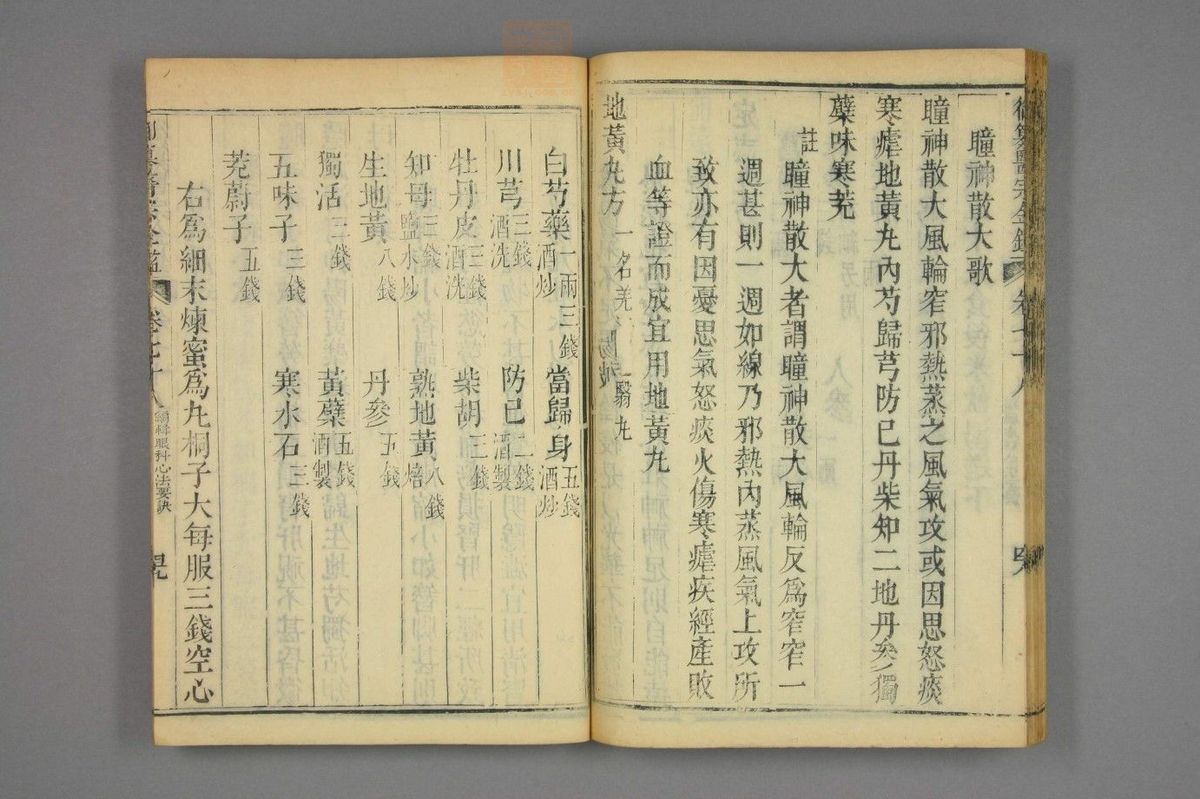 卷七十八
瞳神散大歌
瞳神散大風輪窄邪熱蒸之風氣攻或因思怒痰
寒瘧地黃丸內芍歸芎防已丹柴知二地丹參獨
蘗味寒茺
註
瞳神散大者謂瞳神散大風輪反爲窄窄一
週甚則一週如線乃邪熱內蒸風氣上攻所
致亦有因憂思氣怒痰火傷寒瘧疾經產敗
血等證而成宜用地黃丸
地黃丸方一名羌
翳丸
白芍藥一兩三錢酒炒 當歸身五錢酒炒
川芎三錢酒洗 防已二錢酒製
牡丹皮三錢酒洗 柴胡三錢
知母三錢鹽水炒 熟地黃八錢焙
生地黃八錢 丹參五錢
獨活三錢 黃蘗五錢酒製
五味子三錢 寒水石三錢
茺蔚子五錢
右爲細末煉蜜爲丸桐子大每服三錢空心
卷七十八 編輯眼科心法要訣